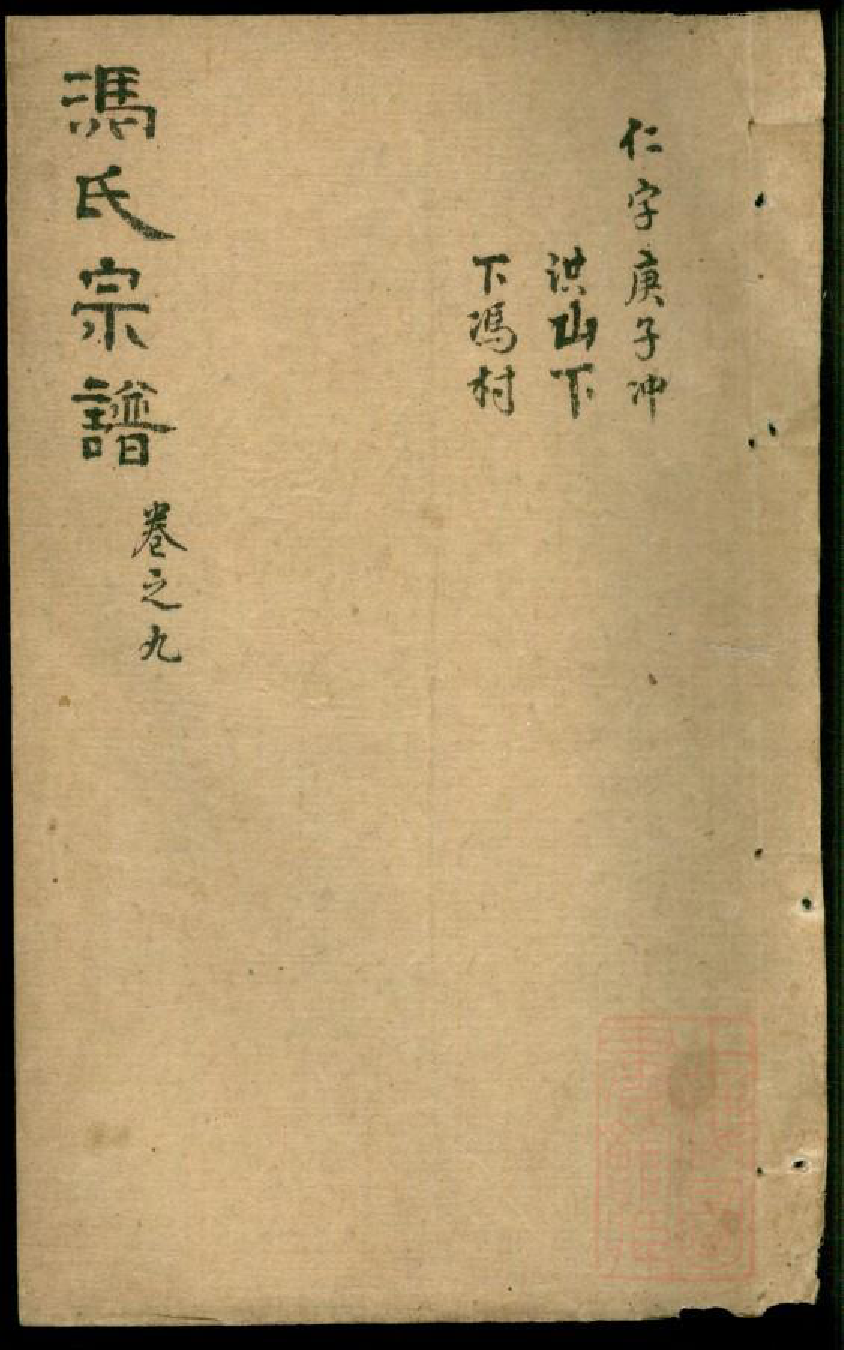 仁字庚子冲
洪山下
下馮村
馮氏宗譜
卷之九